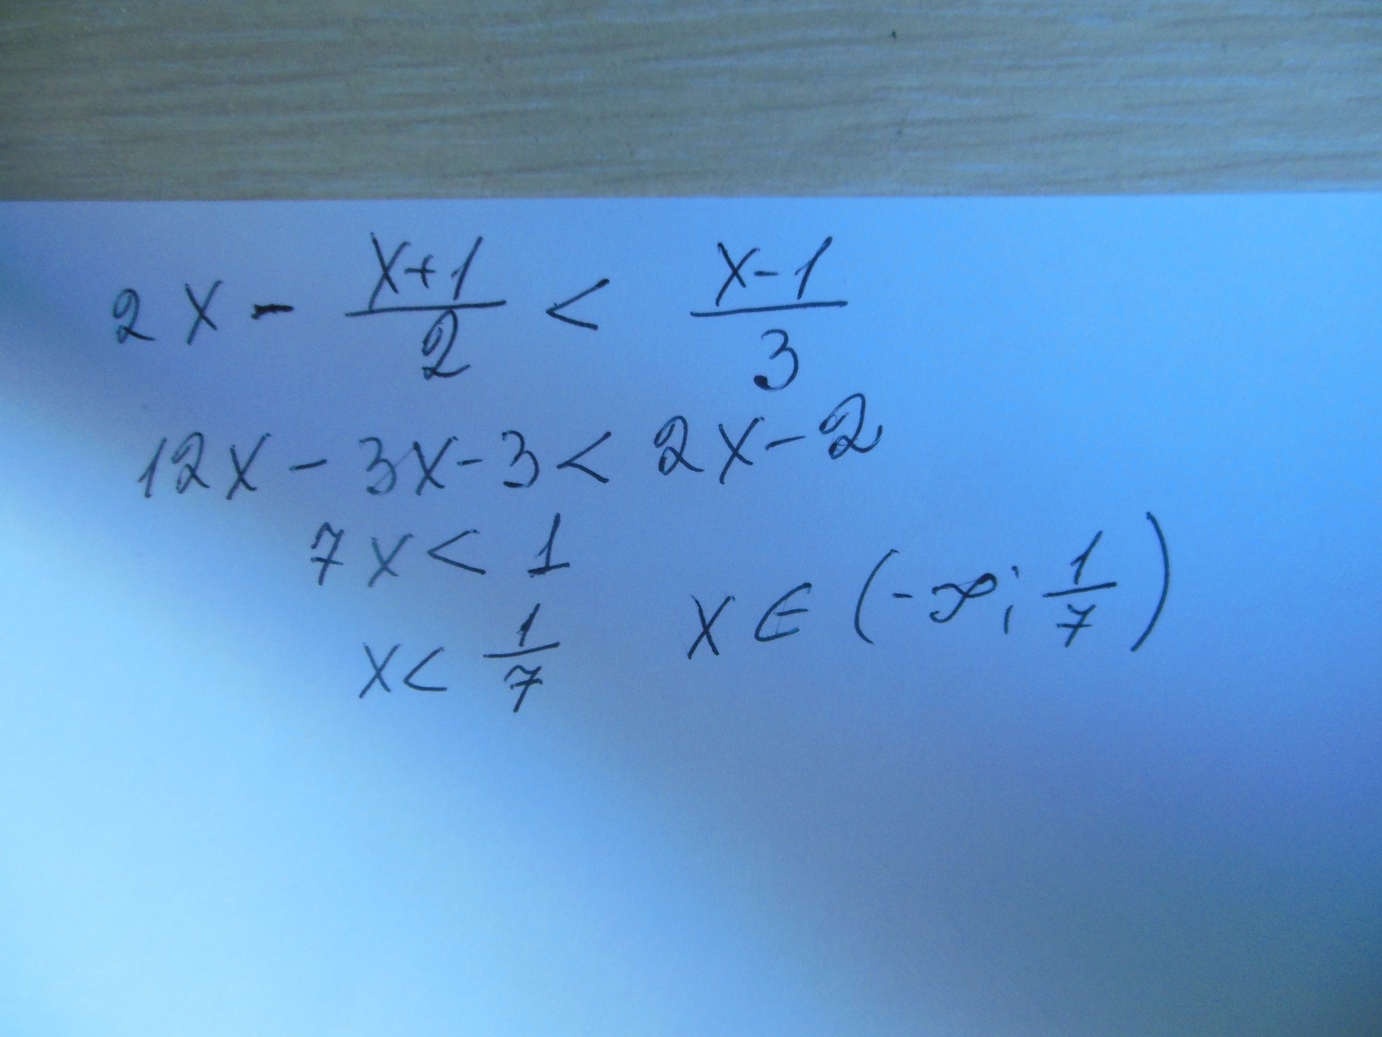 2x - \frac{x+1}{2} < \frac{x-1}{3}
12x - 3x - 3 < 2x - 2
7x < 1
x < \frac{1}{7} x ∈ (-∞; \frac{1}{7})